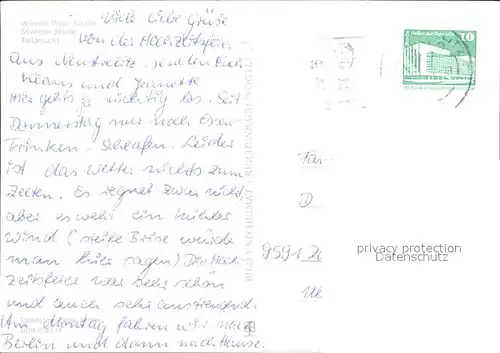 Viele liebe Grüße
Wilhelm-Pieck-Straße
Strelitzer Straße
Teilansicht
von der Hochzeitsfeier
aus Neustrelitz, senden Euch
Klaus und Jeanette
Hier gehts ja richtig los. Seit
Donnerstag nur noch Essen
Trinken - Schlafen. Leider
ist das Wetter nichts zum
Zelten. Es regnet zwar nicht,
aber es weht ein kühler
Wind (steife Brise würde
man hier sagen) Die Hoch
zeitsfeier war sehr schön
und auch sehr anstrengend.
Am Montag fahren wir nach
Berlin und dann nach Hause.
BILD UND HEIMAT REICHENBACH
10
Fam
D
9591
privacy protection
Datenschutz